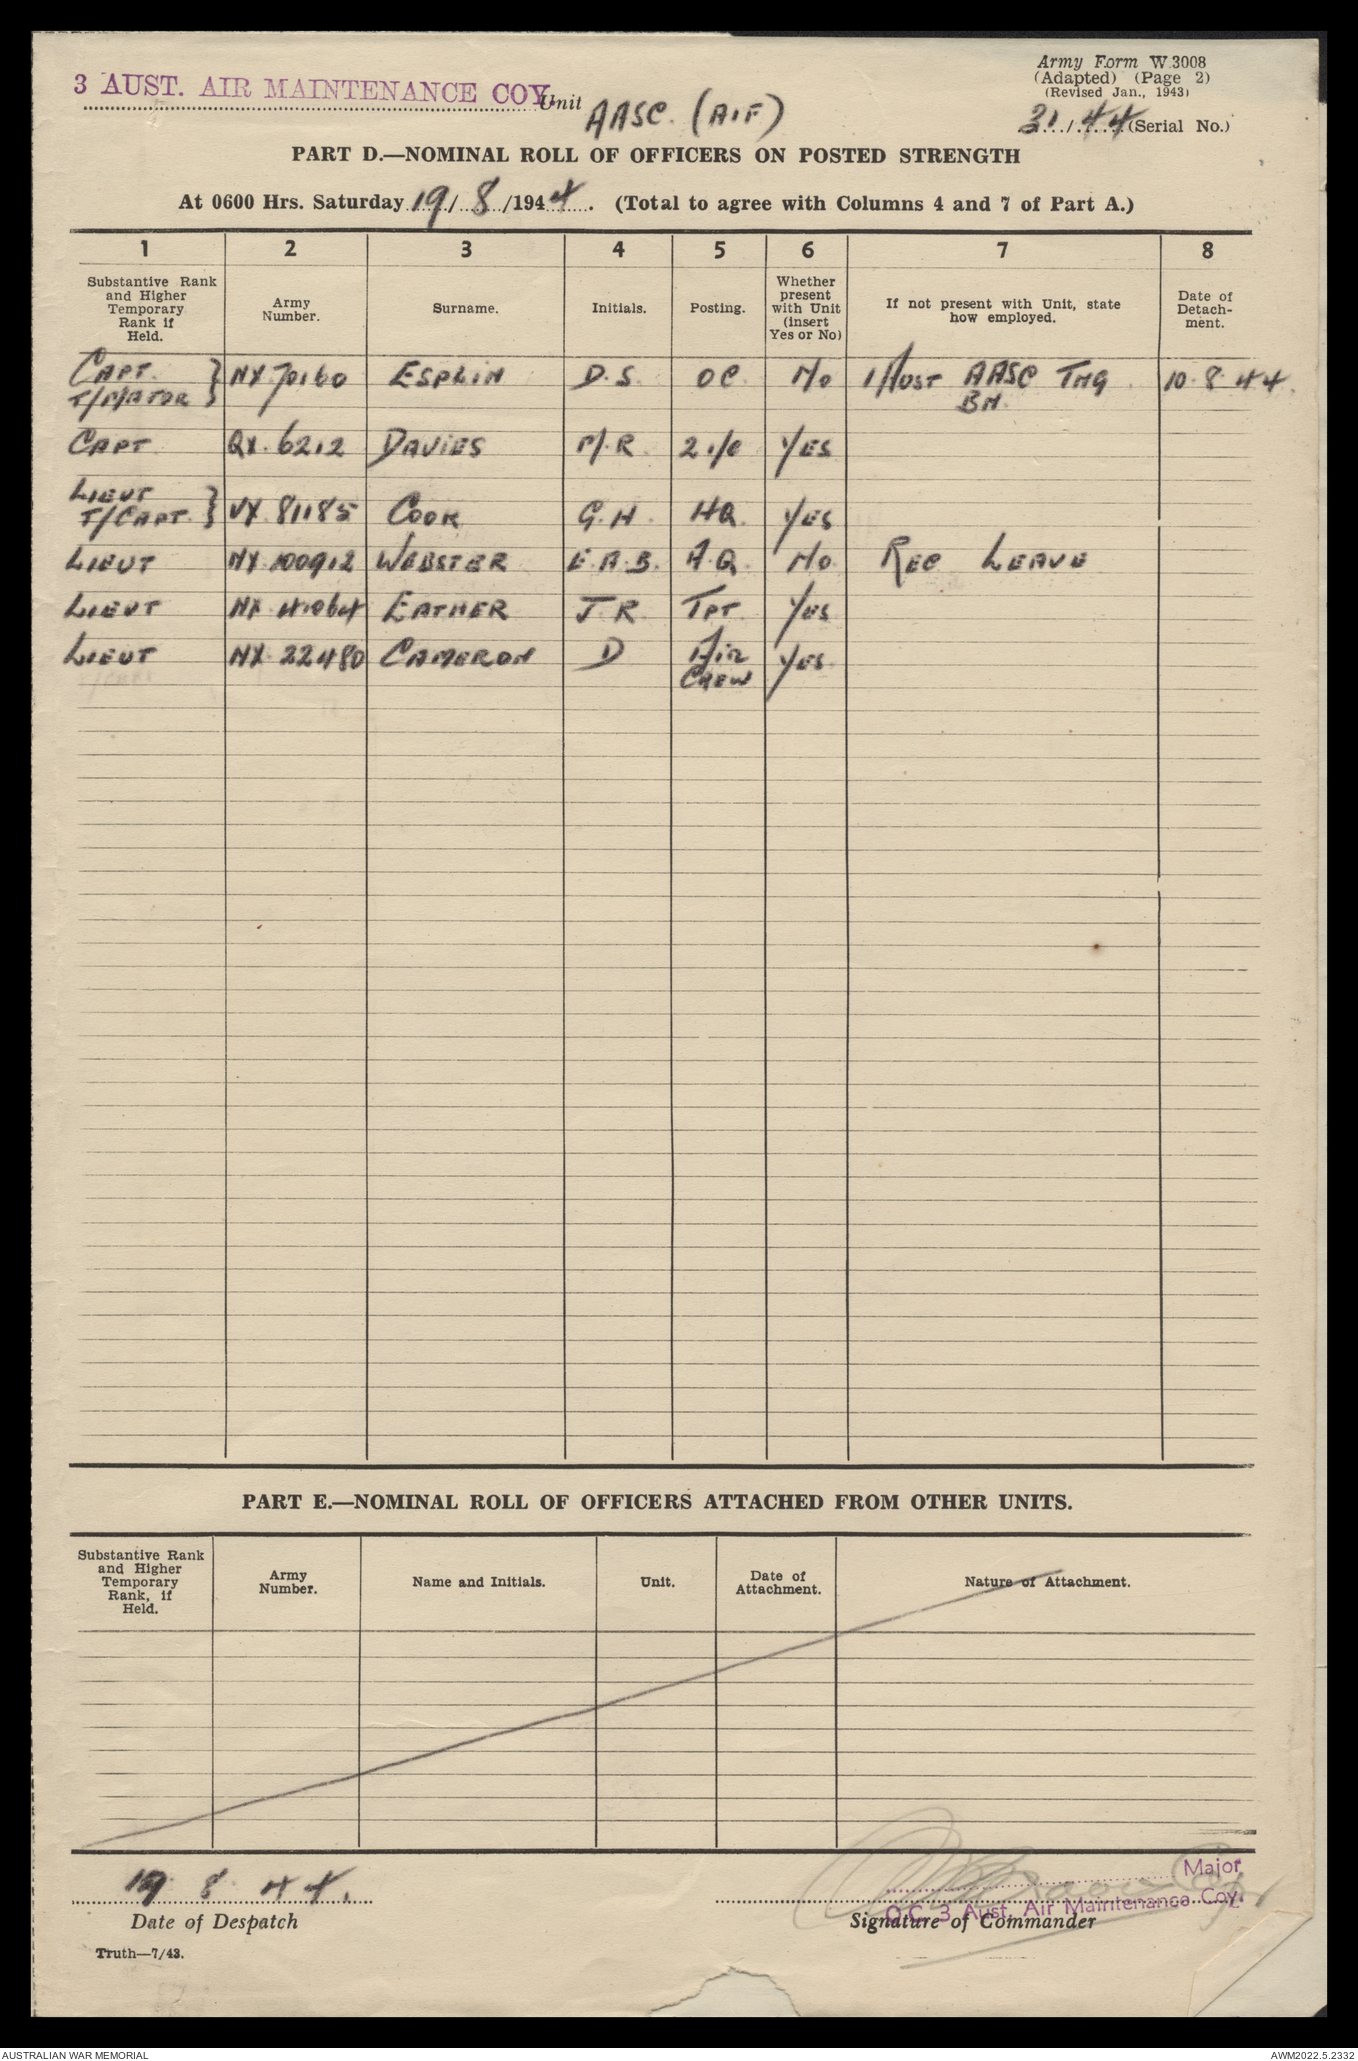 3 AUST. AIR MAINTENANCE COY. Unit AASC. (AIF)
Army Form W.3008
(Adapted) (Page 2)
(Revised Jan., 1943)
31/44 (Serial No.)
PART D.—NOMINAL ROLL OF OFFICERS ON POSTED STRENGTH
At 0600 Hrs. Saturday 19/8/1944. (Total to agree with Columns 4 and 7 of Part A.)
1 2 3 4 5 6 7 8
Substantive Rank and Higher Temporary Rank if Held. Army Number. Surname. Initials. Posting. Whether present with Unit (insert Yes or No) If not present with Unit, state how employed. Date of Detach-ment.
CAPT. T/MAJOR } NX 70160 ESPLIN D.S. OC. No 1 Aust AASC TNG BN. 10.8.44.
CAPT QX.6212 DAVIES M.R 2 i/c YES
LIEUT T/CAPT. } VX.81185 COOK G.H. HQ. YES
LIEUT NX.100912 WEBSTER E.A.B. A.Q. No REC LEAVE
LIEUT NX.41064 EATHER J.R. TPT. YES
LIEUT NX.22480 CAMERON D AIR CREW YES
PART E.—NOMINAL ROLL OF OFFICERS ATTACHED FROM OTHER UNITS.
Substantive Rank and Higher Temporary Rank, if Held. Army Number. Name and Initials. Unit. Date of Attachment. Nature of Attachment.
19.8.44.
Major
O.C. 3 Aust. Air Maintenance Coy.
Date of Despatch
Signature of Commander
Truth—7/43.
AUSTRALIAN WAR MEMORIAL
AWM2022.5.2332